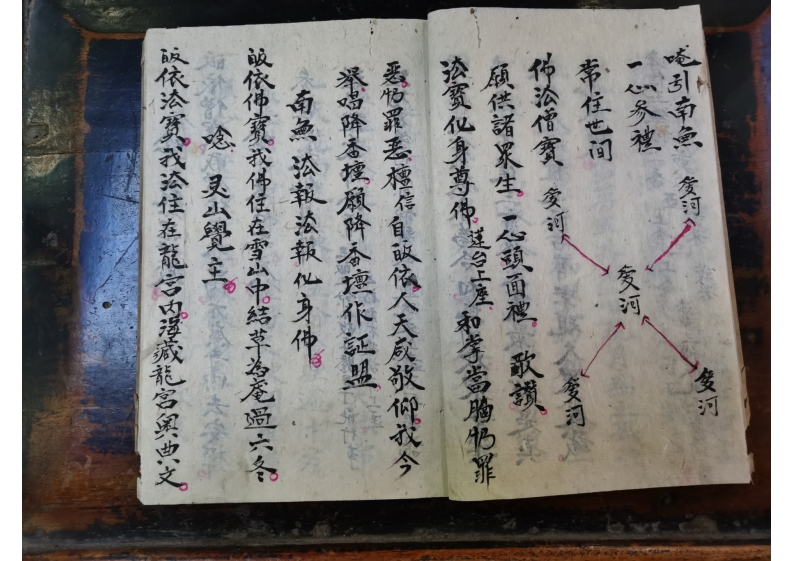 唵引南無
一心参禮
常住世间
佛法僧寳
願供諸眾生。一心頭面禮。歌讃。
法寳化身尊佛。莲台上座。和掌當胸犯罪
爱河
爱河
爱河
爱河
爱河
恶。犯罪恶。檀信自皈依。人天咸敬仰。我今
举唱降香壇。願降香壇作証盟
南無 法報法報化身佛。
皈依佛寳。我佛住在雪山中。结草為庵過六冬。
唸 灵山覺主。
皈依法寳。我法住在龍宫内。海藏龍宫奥典文。